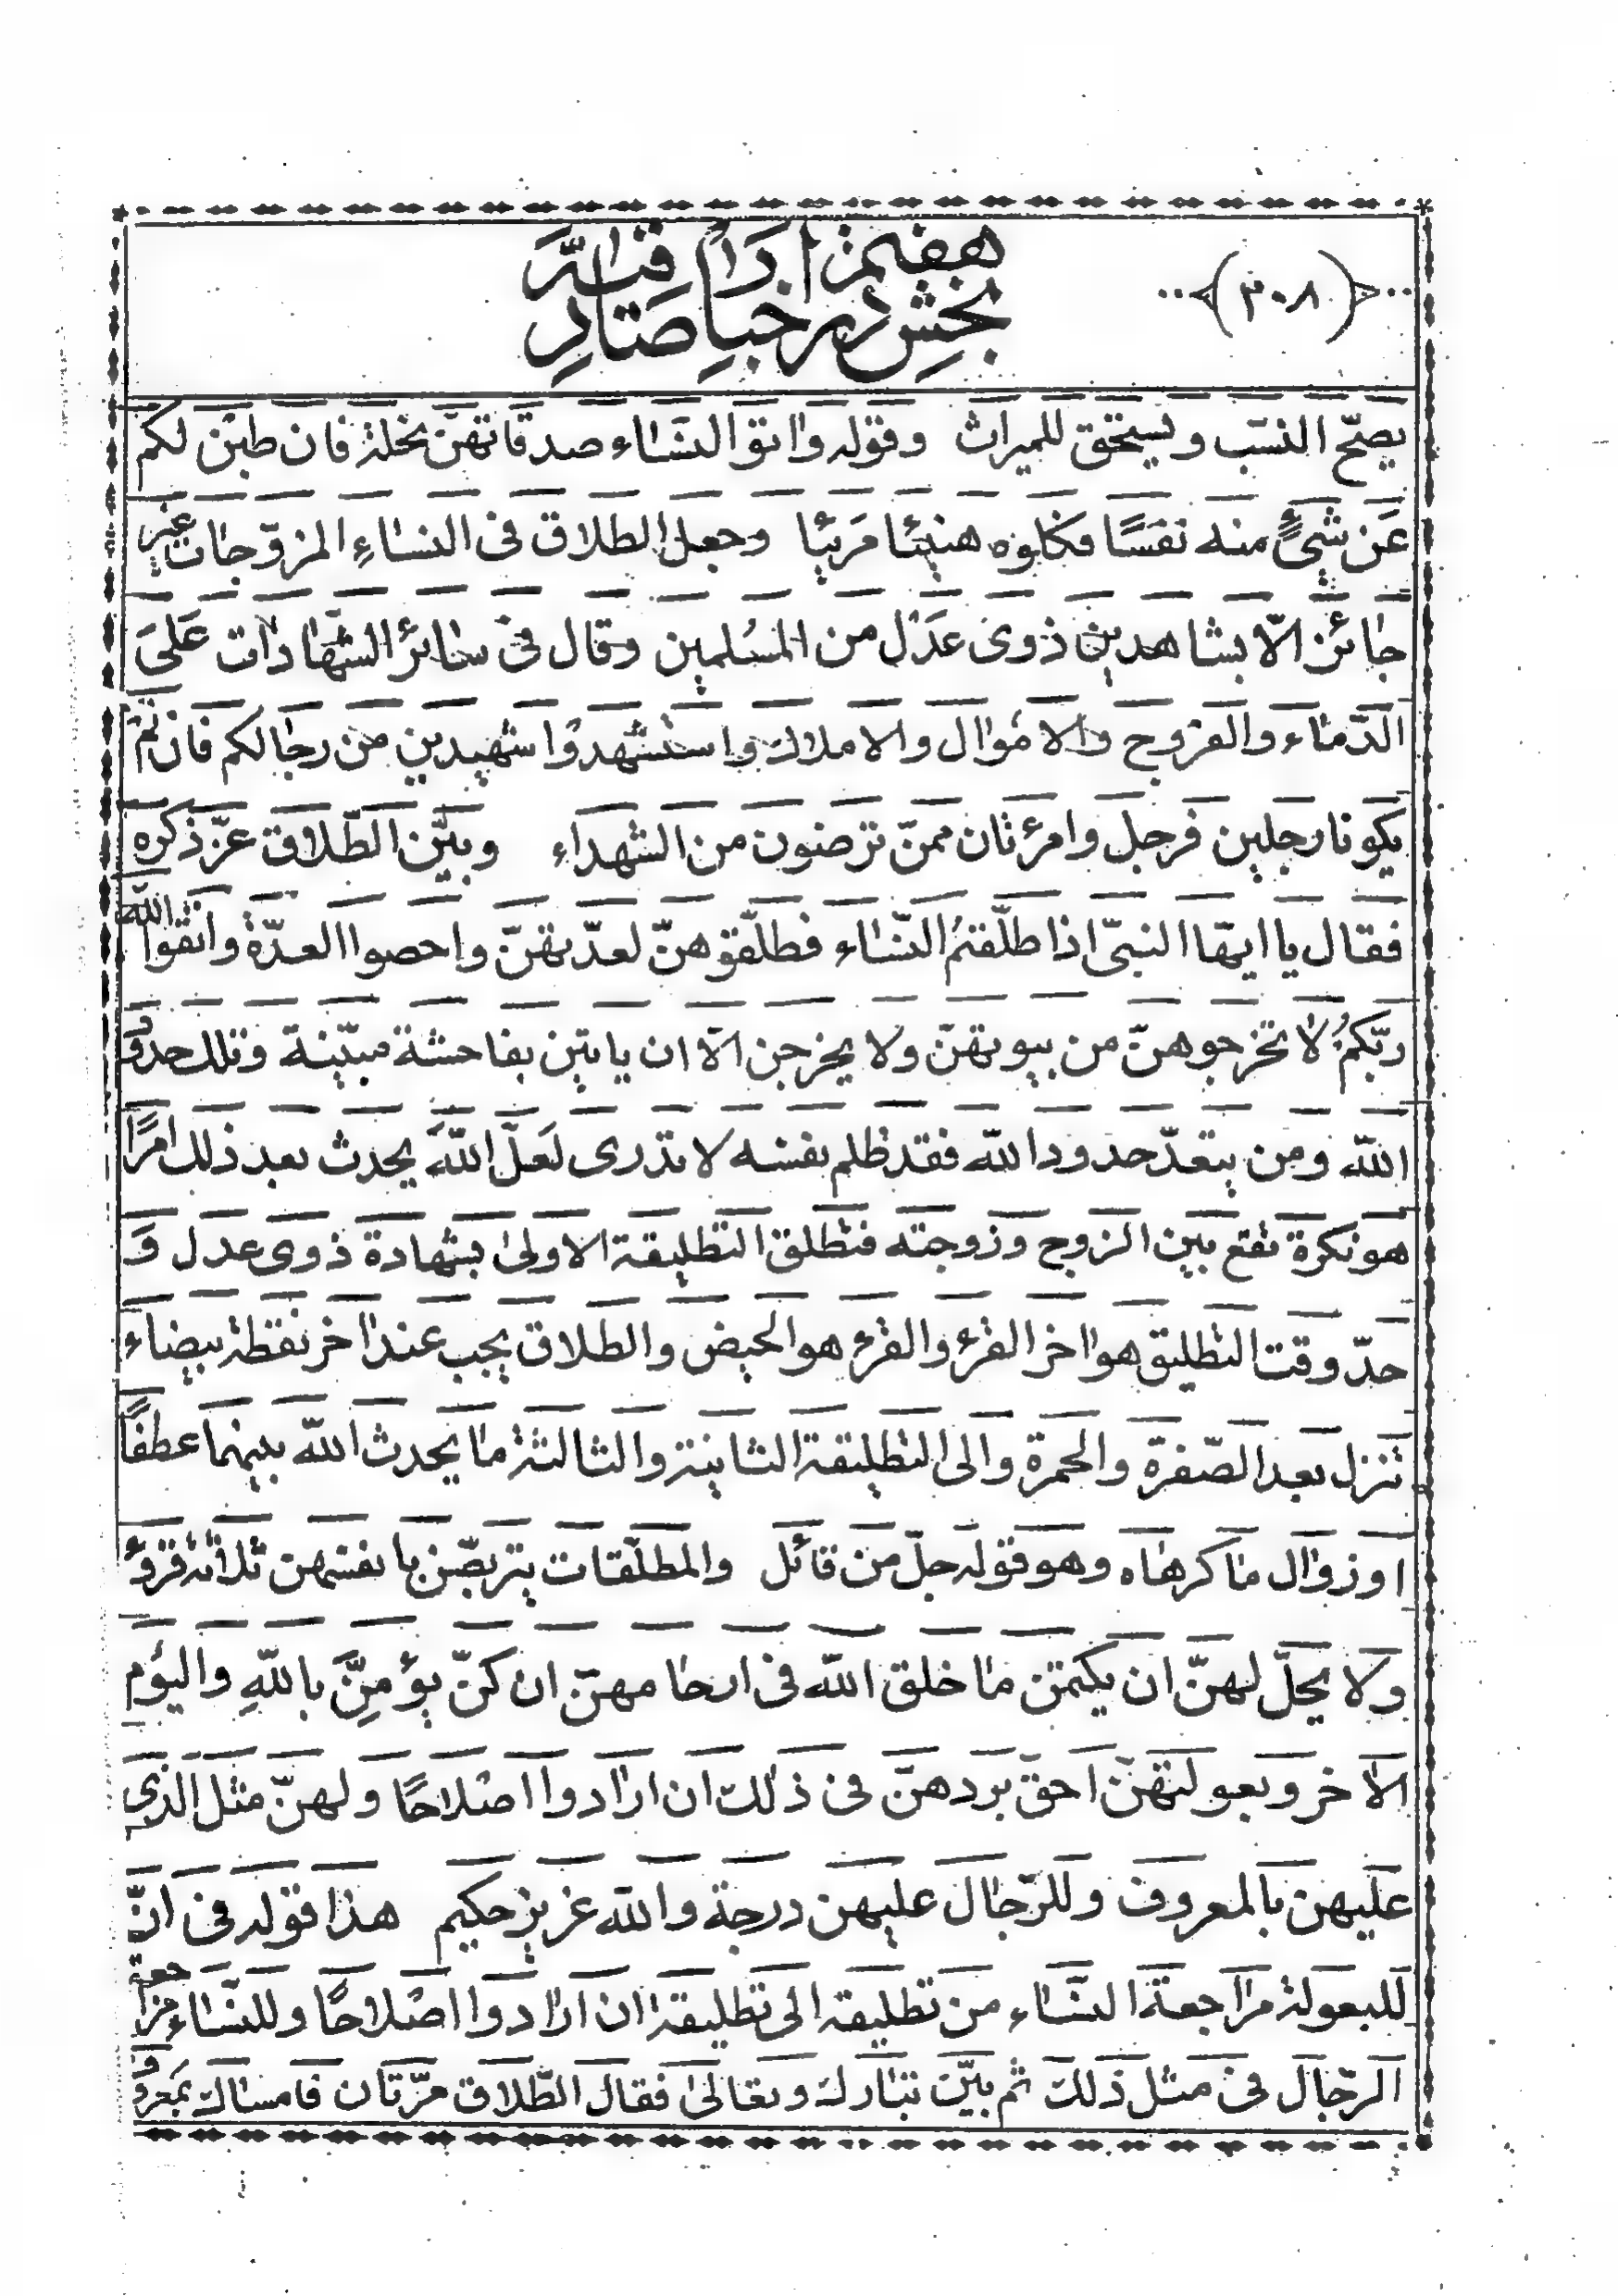 ﴿٣٠٨﴾
بخش در اخبار
يصحّ النسب و يستحق للميراث وقوله واتو النّساء صدقاتهنّ نحلة فان طبن لكم
عَن شيءٍ منه نفسًا فكلوه هنيئا مَريئا وجعل الطلاق فى النساءِ المزوّجات غير
جائز الّا بشاهدين ذوى عَدْل من المسُلمين وقال فى سائر الشّهادات عَلىَ
الدّمآء والفروج والاموال والاملاك واستشهدوُا شهيدين من رجالكم فان لم
يكونا رجلين فرجل وامرءتان ممنّ ترضون من الشهداء وبيّن الطّلاق عزّ ذكره
فقال يا ايهّا النبىّ اذا طلّقتمُ النسّاء فطلّقوهنّ لعدّتهنّ واحصوا العدّة واتقوا الله
ربّكمُ لا تخرجوهنّ من بيوتهنّ ولا يخرجن الّا ان ياتين بفاحشة مبيّنة وتلك حدود
الله ومن يتعدّ حدود الله فقد ظلم نفسه لا تدرى لَعلّ اللهَ يحدث بعد ذلك امرًا
هو نكرة تقع بين الزوج وزوجته فتطلق التطليقة الاولى بشهادة ذوى عدل وَ
حدّ وقت التطليق هو اخر القرء والقرء هو الحيض والطلاق يجب عند اخر نقطة بيضاء
تنزل بعد الصّفرة والحمرة والى التطليقة الثانية والثالثة ما يحدث الله بينهما عطفًا
او زوال ما كرهاه وهو قوله جلّ من قائل والمطلّقات يتربصّن بانفسهن ثلاثة قروء
ولا يحلّ لهنّ ان يكتمن ما خلق الله فى ارحامهنّ ان كنّ يؤمِنَّ باللهِ واليوم
الاخر وبعولتهنّ احق بردهنّ فى ذلك ان ارادوا اصْلاحًا ولهنّ مثل الذى
عليهن بالمعروف وللرّجال عليهن درجة والله عزيز حكيم هذا قوله فى انّ
للبعولة مراجعة النسّاء من تطليقة الى تطليقة ان ارادوا اصْلاحًا وللنسّاء مراجعة
الرّجال فى مثل ذلك ثم بيّن تبارك وتعالى فقال الطّلاق مرّتان فامساك بمَعروف